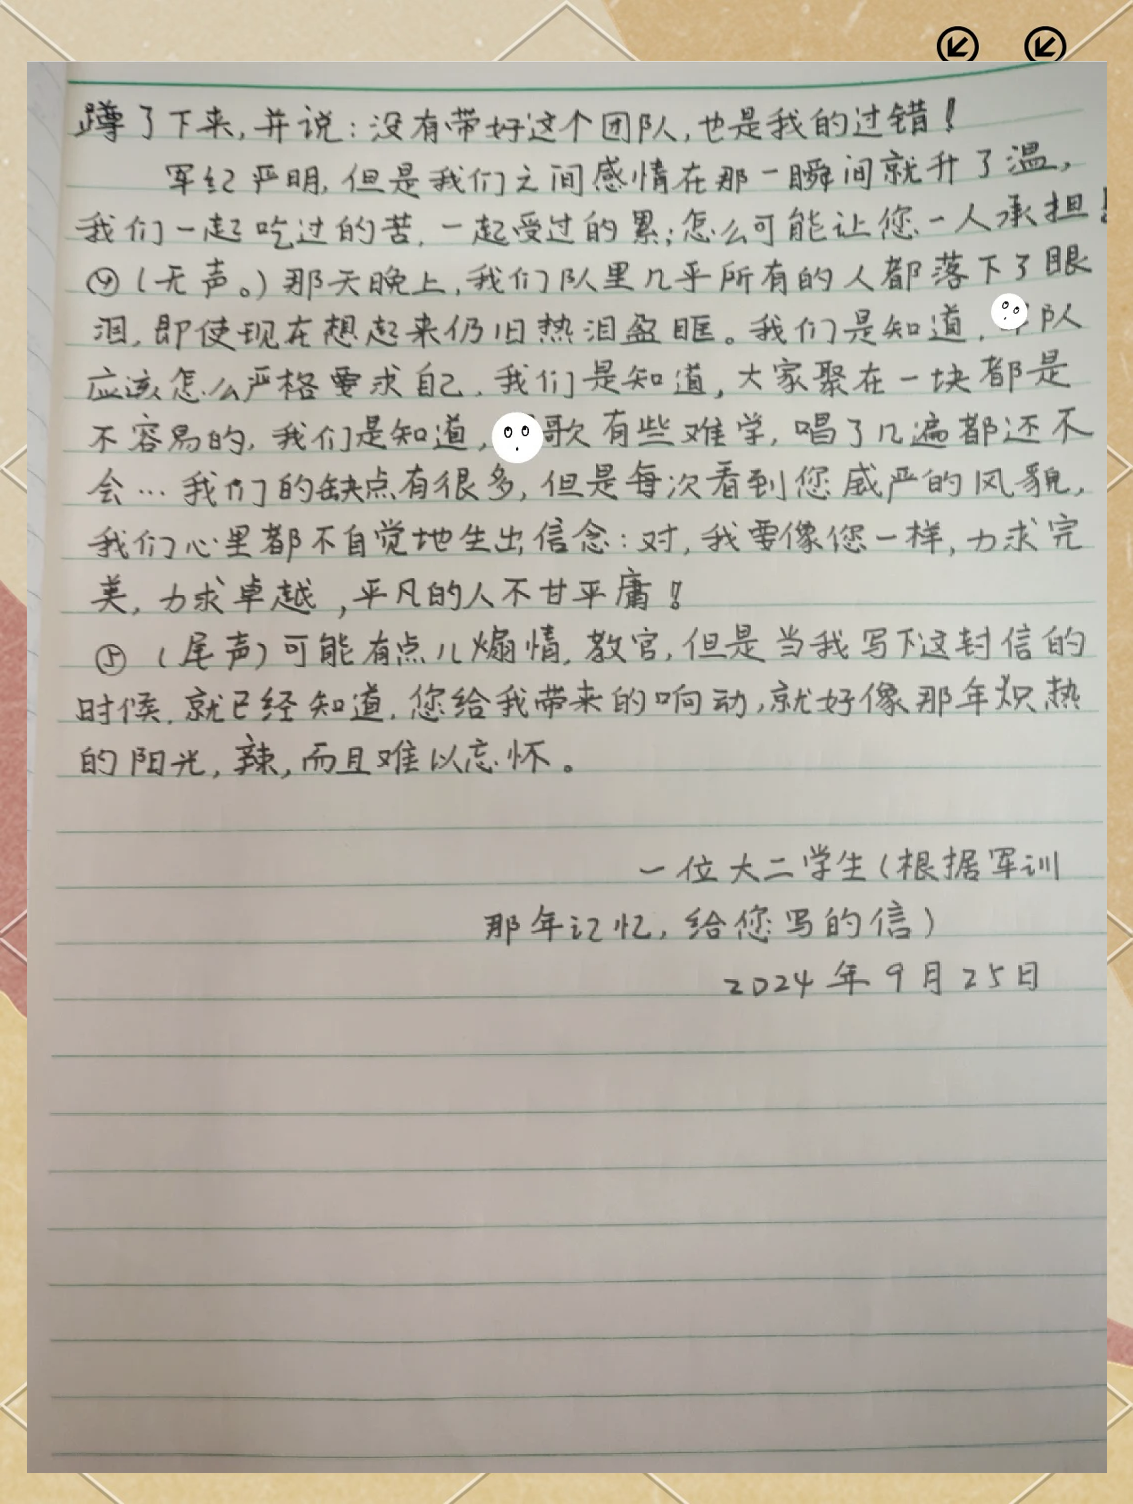 蹲了下来,并说:没有带好这个团队,也是我的过错!
军纪严明,但是我们之间感情在那一瞬间就升了温,
我们一起吃过的苦,一起受过的累;怎么可能让您一人承担!
④(无声。)那天晚上,我们队里几乎所有的人都落下了眼
泪,即使现在想起来仍旧热泪盈眶。我们是知道,队
应该怎么严格要求自己,我们是知道,大家聚在一块都是
不容易的,我们是知道,歌有些难学,唱了几遍都还不
会…我们的缺点有很多,但是每次看到您威严的风貌,
我们心里都不自觉地生出信念:对,我要像您一样,力求完
美,力求卓越,平凡的人不甘平庸!
⑤(尾声)可能有点儿煽情,教官,但是当我写下这封信的
时候,就已经知道,您给我带来的响动,就好像那年炽热
的阳光,辣,而且难以忘怀。
一位大二学生(根据军训
那年记忆,给您写的信)
2024年9月25日